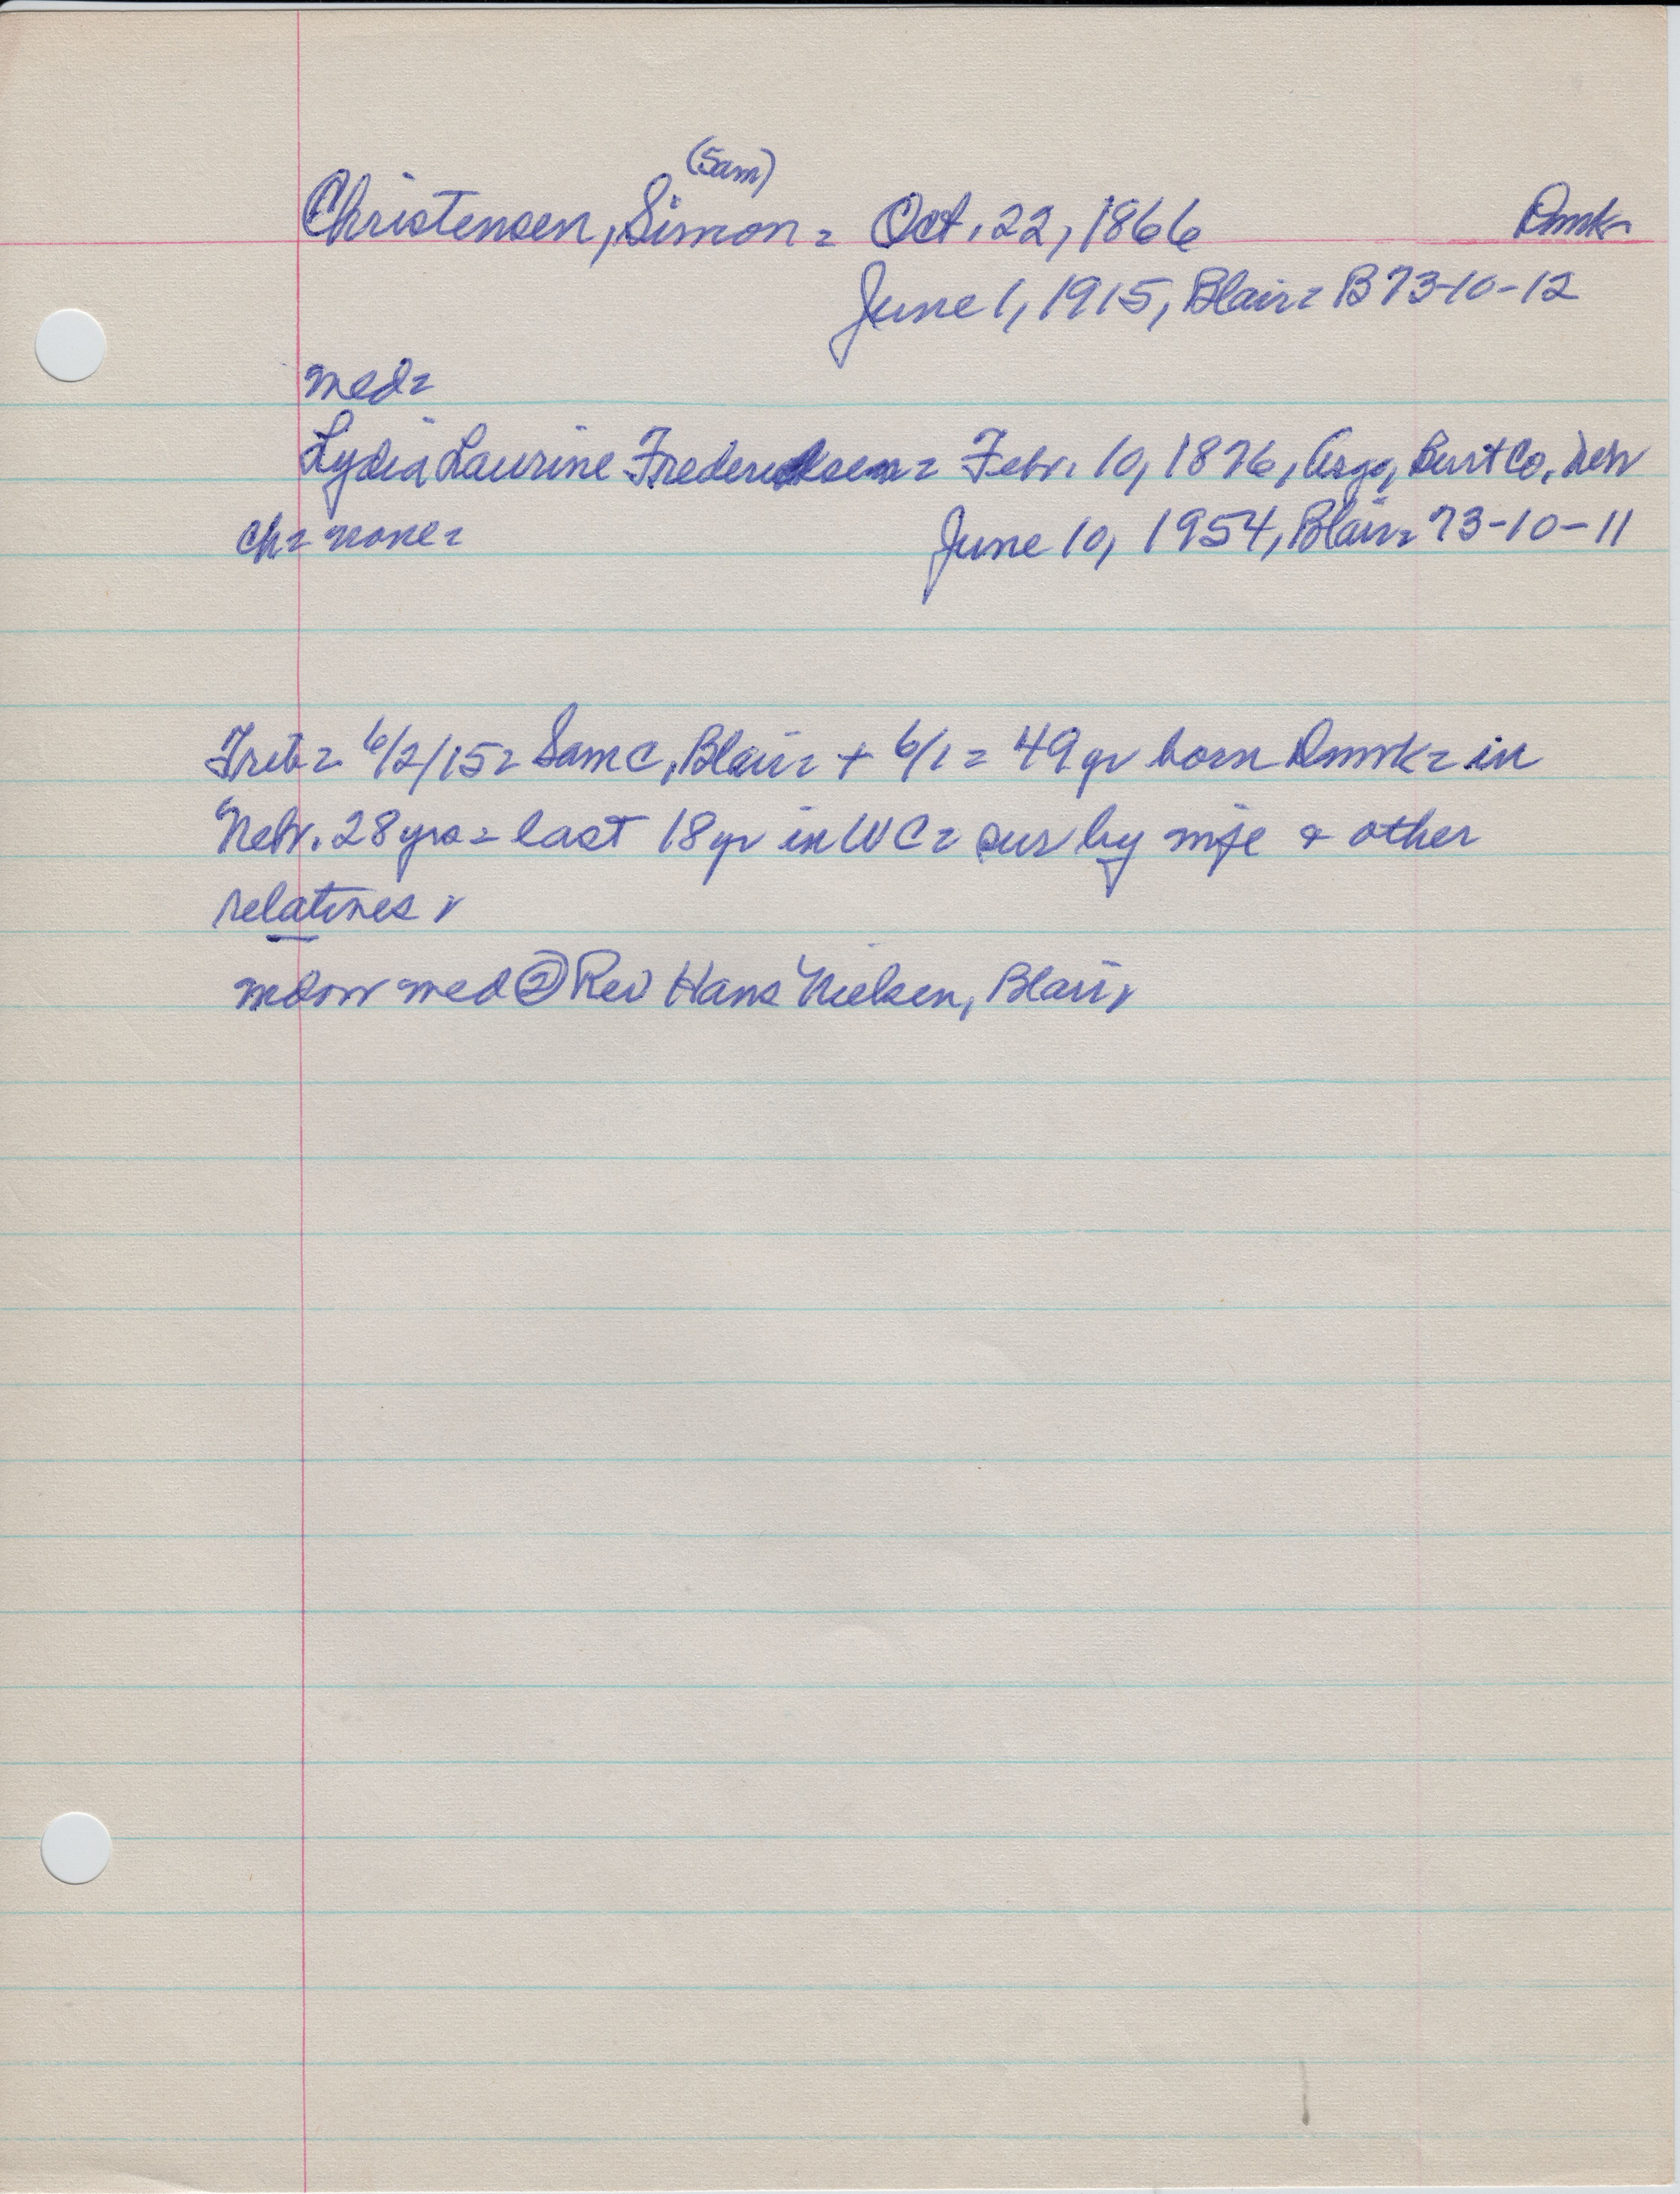 (Sam)
Christensen, Simon = Oct. 22, 1866 Dmk
June 1, 1915, Blair = B 73-10-12
med =
Lydia Laurine Fredericksen = Febr. 10, 1876, Argo, Burt Co, Nebr
ch = none = June 10, 1954, Blair = 73-10-11
Trib = 6/2/15 = Sam C, Blair = + 6/1 = 49 yr born Dmrk = in
Nebr. 28 yrs = last 18 yr in WC = sur by wife & other
relatives
widow med ② Rev Hans Nielsen, Blair